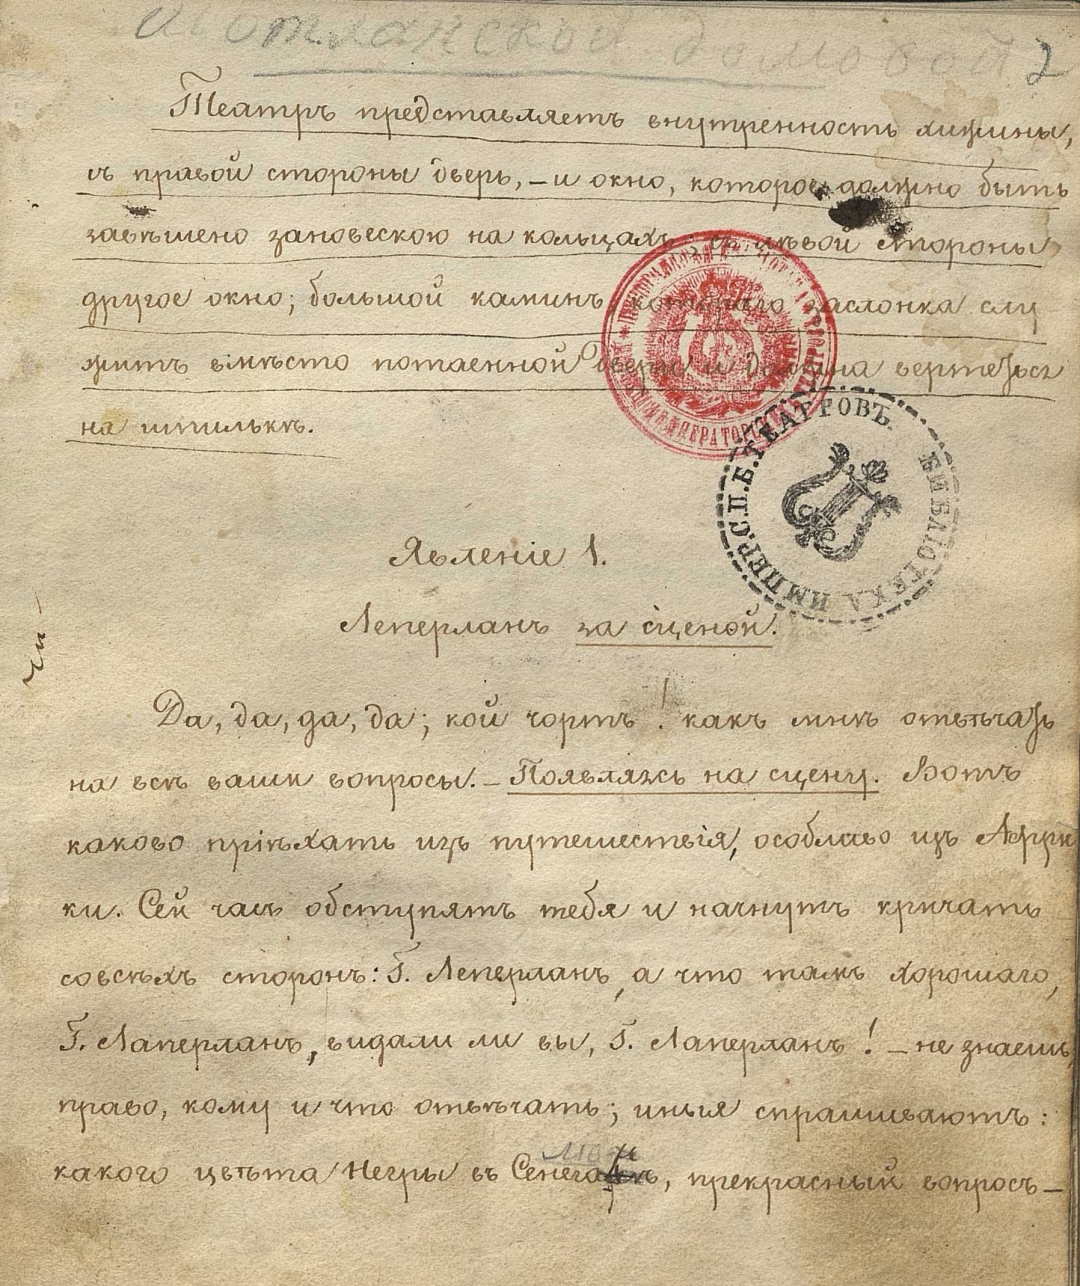 Шотланской домовой 2
Театръ представляетъ внутренность хижины,
съ правой стороны дверь, – и окно, которое должно быть
завѣшено зановескою на кольцахъ, съ лѣвой стороны
другое окно; большой каминъ котораго заслонка слу
житъ вмѣсто потаенной двери и должна вертеться
на шпилькѣ.
БИБЛІОТЕКА ИМПЕР. С.П.Б. ТЕАТРОВЪ.
Явленіе 1.
Леперланъ за сценой.
Да, да, да, да; кой чортъ! какъ мнѣ отвѣчать
на всѣ ваши вопросы. – Появляясь на сцену. Вотъ
каково пріѣхать изъ путешествія, особливо изъ Афри
ки. Сей часъ обступятъ тебя и начнутъ кричать
совсѣхъ сторонъ: Г. Леперланъ, а что тамъ хорошаго,
Г. Лаперланъ, видали ли вы, Г. Лаперланъ! – не знаешь,
право, кому и что отвѣчать; иныя спрашиваютъ:
какого цвѣта Негры въ прекрасный вопросъ –